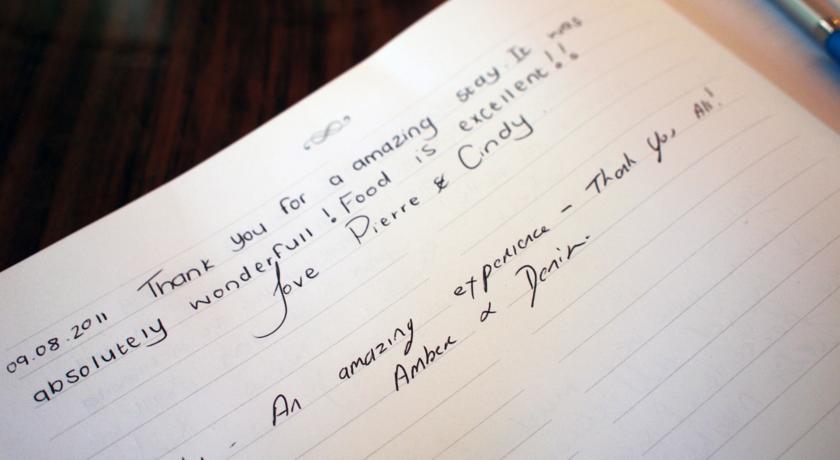 09.08.2011 Thank you for a amazing stay. It was
absolutely wonderfull! Food is excellent!!
Love Pierre & Cindy
An amazing experience - Thank you All!
Amber &